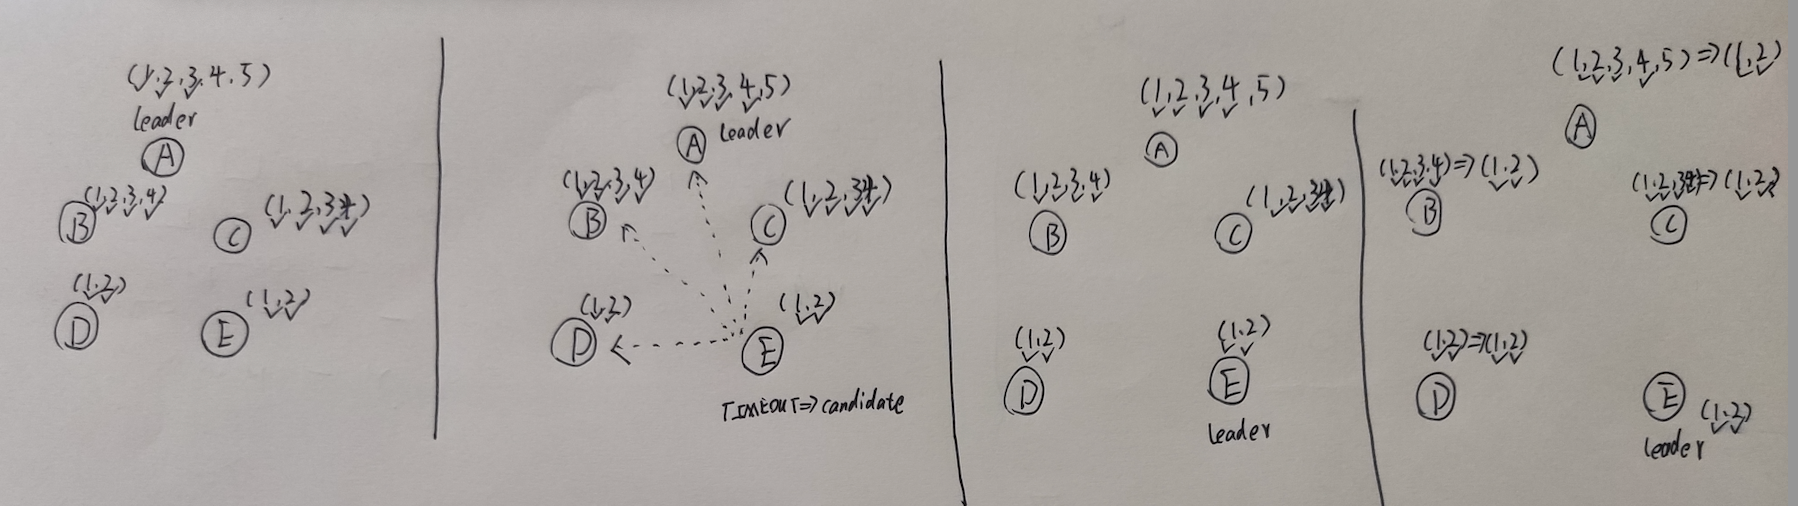 (1,2,3,4,5)
leader
A
(1,2,3,4)
B
C
(1,2,3,4)
(1,2)
D
(1,2)
E
(1,2,3,4,5)
A
leader
(1,2,3,4)
B
(1,2,3,4)
C
(1,2)
D
(1,2)
E
TIMEOUT=>candidate
(1,2,3,4,5)
A
(1,2,3,4)
B
(1,2,3,4)
C
(1,2)
D
(1,2)
E
leader
(1,2,3,4,5)=>(1,2)
A
(1,2,3,4)=>(1,2)
B
C
(1,2)=>(1,2)
D
E
(1,2)
leader